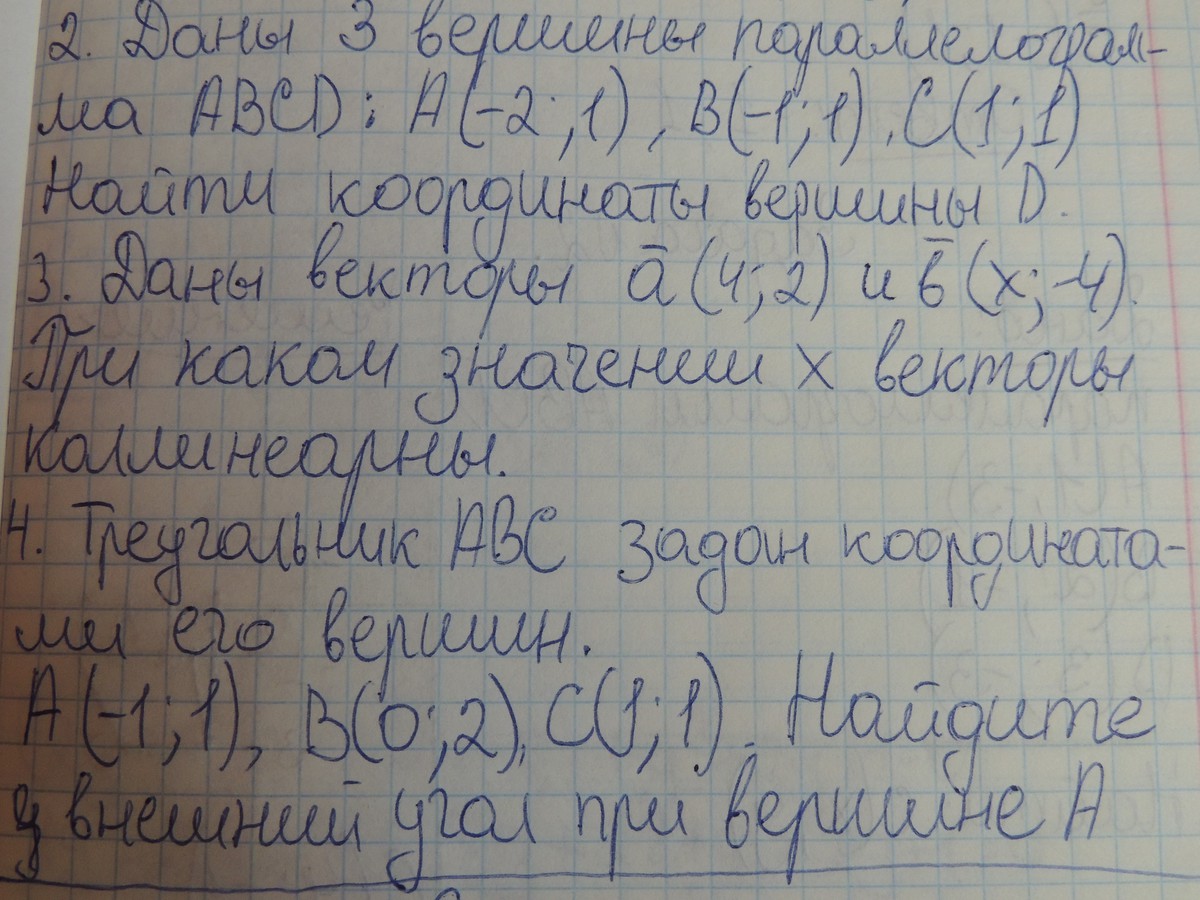 2. Даны 3 вершины параллелограм-
ма ABCD: A(-2;1), B(-1;1), C(1;1)
Найти координаты вершины D.
3. Даны векторы a̅ (4;2) и b̅ (x;-4).
При каком значении x векторы
коллинеарны.
4. Треугольник ABC задан координата-
ми его вершин.
A(-1;1), B(0;2), C(1;1). Найдите
внешний угол при вершине A